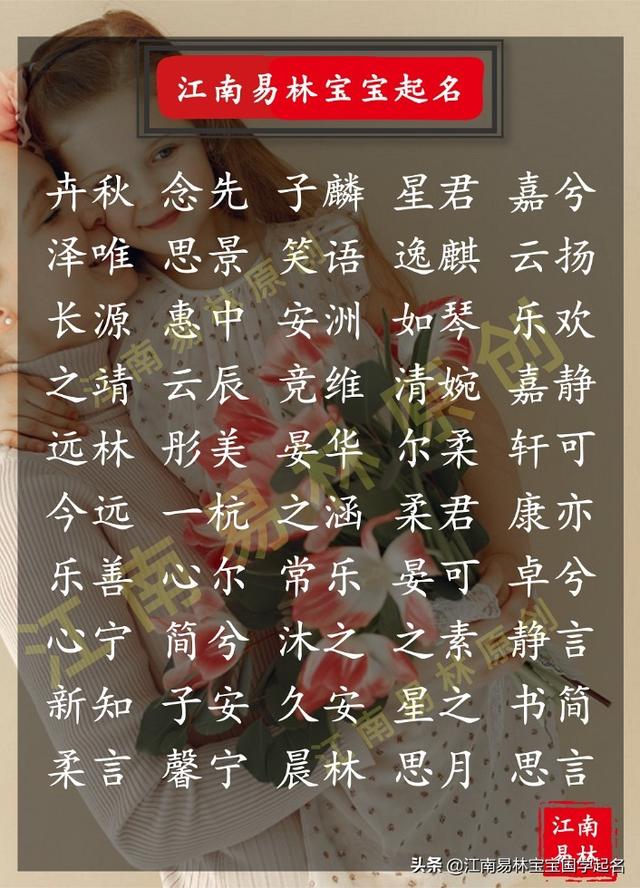 江南易林宝宝起名
卉秋 念先 子麟 星君 嘉兮
泽唯 思景 笑语 逸麒 云扬
长源 惠中 安洲 如琴 乐欢
之靖 云辰 竞维 清婉 嘉静
远林 彤美 晏华 尔柔 轩可
今远 一杭 之涵 柔君 康亦
乐善 心尔 常乐 晏可 卓兮
心宁 简兮 沐之 之素 静言
新知 子安 久安 星之 书简
柔言 馨宁 晨林 思月 思言
江南易林原创
江南易林原创
江南易林原创
江南
易林
头条 @江南易林宝宝国学起名